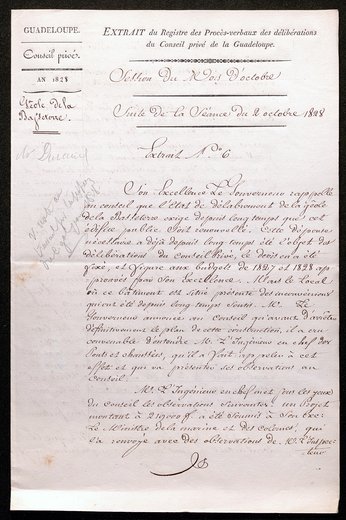 GUADELOUPE.
Conseil privé.
AN 1828
Géole de la
Basseterre.
EXTRAIT du Registre des Procès-verbaux des délibérations
du Conseil privé de la Guadeloupe.
Session Du Mois D'octobre
Suite de la Séance du 2 octobre 1828
Extrait N.º 6
Son Excellence Le Gouverneur rappelle
au conseil que l'État de délabrement de la géole
de la Basseterre exige depuis longtemps que cet
édifice public soit renouvellé. Cette dépense
nécessaire a déjà depuis longtemps été l'objet des
délibérations du Conseil Privé, le devis en a été
fixé, et figure aux budgets de 1827 et 1828 ap-
prouvés par Son Excellence. Mais le Local
où ce bâtiment est situé présente des inconvéniens
qui ont été depuis longtemps sentis. M. Le
Gouverneur annonce au Conseil qu'avant d'arrêter
définitivement le plan de cette construction, il a cru
convenable d'entendre M. L'Ingénieur en chef des
Ponts et chaussées, qu'il a fait appeler à cet
effet et qui va présenter ses observations au
Conseil.
M. L'Ingénieur en chef met sous les yeux
du conseil les observations suivantes: un Projet
montant à 219,000 f. a été soumis à Son Exc:
Le Ministre de la marine et des colonies, qui
l'a renvoyé avec des observations de M. L'Inspec-
teur